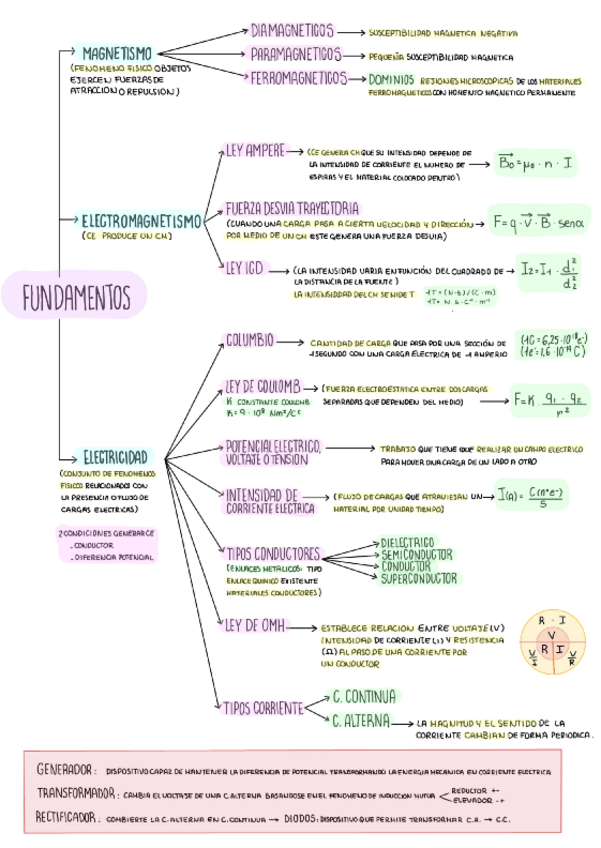 DIAMAGNETICOS → SUSCEPTIBILIDAD MAGNETICA NEGATIVA
MAGNETISMO
PARAMAGNETICOS → PEQUEÑA SUSCEPTIBILIDAD MAGNETICA
(FENOMENO FISICO OBJETOS
EJERCEN FUERZAS DE
ATRACCION O REPULSION)
FERROMAGNETICOS → DOMINIOS REJIONES MICROSCOPICAS DE LOS MATERIALES
FERROMAGNETICOS CON MOMENTO MAGNETICO PERMANENTE
LEY AMPERE → (CE GENERA CM QUE SU INTENSIDAD DEPENDE DE
LA INTENSIDAD DE CORRIENTE EL NUMERO DE
ESPIRAS Y EL MATERIAL COLOCADO DENTRO)
B₀ = μ₀ · n · I
ELECTROMAGNETISMO
(CE PRODUCE UN CM)
FUERZA DESVIA TRAYECTORIA
(CUANDO UNA CARGA PASA A CIERTA VELOCIDAD Y DIRECCIÓN
POR MEDIO DE UN CM ESTE GENERA UNA FUERZA DESVIA)
F = q · V · B · senα
LEY ICD → (LA INTENSIDAD VARIA EN FUNCIÓN DEL CUADRADO DE
LA DISTANCIA DE LA FUENTE)
I₂ = I₁ · d₁² / d₂²
LA INTENSIDDAD DEL CM SE MIDE T
1T = (N·s)/(C·m)
1T = N·s·C⁻¹·m⁻¹
FUNDAMENTOS
COLUMBIO → CANTIDAD DE CARGA QUE PASA POR UNA SECCIÓN DE
1 SEGUNDO CON UNA CARGA ELECTRICA DE 1 AMPERIO
(1C = 6,25·10¹⁸ e⁻)
(1e⁻ = 1,6·10⁻¹⁹ C)
LEY DE COULOMB → (FUERZA ELECTROESTATICA ENTRE DOS CARGAS
SEPARADAS QUE DEPENDEN DEL MEDIO)
K CONSTANTE COULOMB
K = 9·10⁹ Nm²/C²
F = K q₁ · q₂ / r²
ELECTRICIDAD
(CONJUNTO DE FENOMENOS
FISICO RELACIONADOS CON
LA PRESENCIA O FLUJO DE
CARGAS ELECTRICAS)
2 CONDICIONES GENERARCE
- CONDUCTOR
- DIFERENCIA POTENCIAL
POTENCIAL ELECTRICO,
VOLTAJE O TENSION
TRABAJO QUE TIENE QUE REALIZAR UN CAMPO ELECTRICO
PARA MOVER UNA CARGA DE UN LADO A OTRO
INTENSIDAD DE
CORRIENTE ELECTRICA
(FLUJO DE CARGAS QUE ATRAVIESAN UN
MATERIAL POR UNIDAD TIEMPO)
I(A) = C(nºe⁻) / S
TIPOS CONDUCTORES
(ENLACES METALICOS: TIPO
ENLACE QUIMICO EXISTENTE
MATERIALES CONDUCTORES)
DIELECTRICO
SEMICONDUCTOR
CONDUCTOR
SUPERCONDUCTOR
LEY DE OMH → ESTABLECE RELACION ENTRE VOLTAJE (V)
INTENSIDAD DE CORRIENTE (I) Y RESISTENCIA
(Ω) AL PASO DE UNA CORRIENTE POR
UN CONDUCTOR
R · I
V
R I
V/I V/R
TIPOS CORRIENTE
C. CONTINUA
C. ALTERNA → LA MAGNITUD Y EL SENTIDO DE LA
CORRIENTE CAMBIAN DE FORMA PERIODICA.
GENERADOR: DISPOSITIVO CAPAZ DE MANTENER LA DIFERENCIA DE POTENCIAL TRANSFORMANDO LA ENERGIA MECANICA EN CORRIENTE ELECTRICA
TRANSFORMADOR: CAMBIA EL VOLTAJE DE UNA C.ALTERNA BASANDOSE EN EL FENOMENO DE INDUCCION MUTUA
REDUCTOR +-
ELEVADOR -+
RECTIFICADOR: COMBIERTE LA C.ALTERNA EN C.CONTINUA → DIODOS: DISPOSITIVO QUE PERMITE TRANSFORMAR C.A. → C.C.